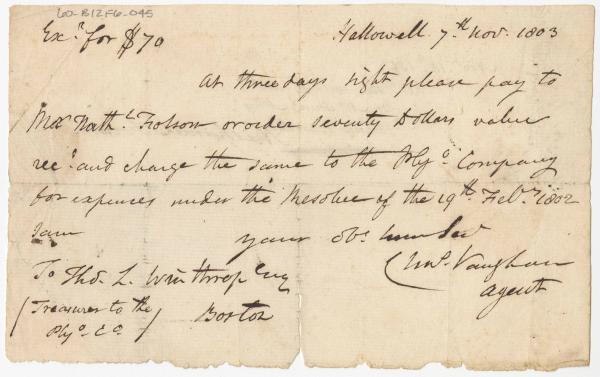 60-B12F6-045
Excᵉ for $70 Hallowell 7.th Nov. 1803
At three days sight please pay to
Mr Nathl. Folsom or order seventy Dollars value
recd. and charge the same to the Plyo. Company
for expences under the Resolve of the 19th. Feby. 1802
I am your obt. hum Sert
Vaughan
To Tho. L. Winthrop Esq Agent
(Treasurer to the Boston
Plyo. Co.)